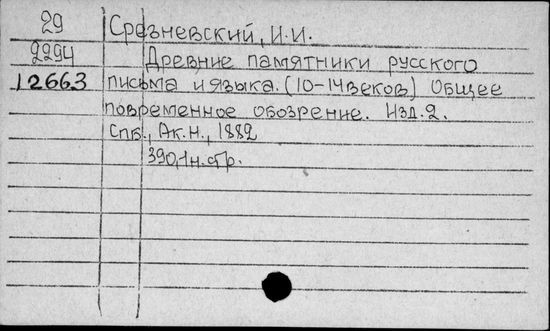 29 Срезневский, И.И.
2294 Древние памятники русского
12663 письма и языка. (10-14 веков) Общее
повременное обозрение. Изд. 2.
Спб., Ак.Н., 1882
390,1н.стр.